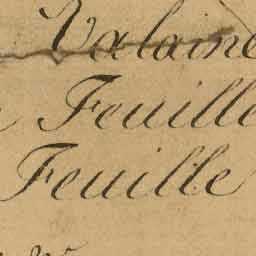 Valaine
Feuille
Feuille